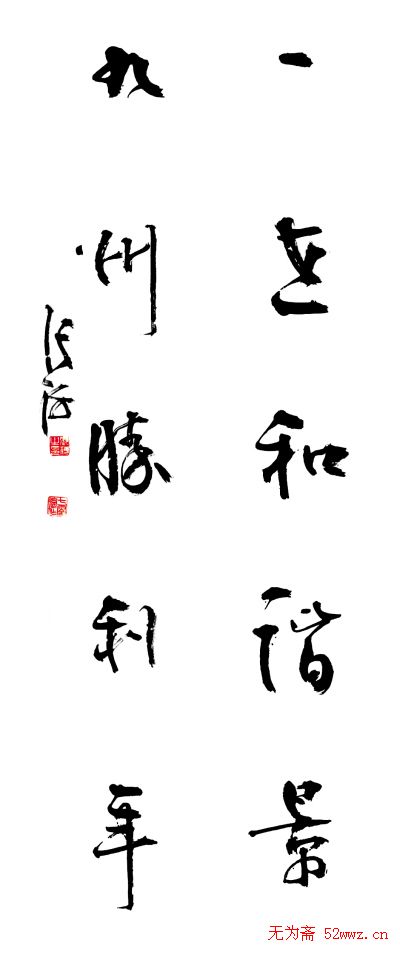 一世和諧景
九州勝利年
无为斋 52wwz.cn